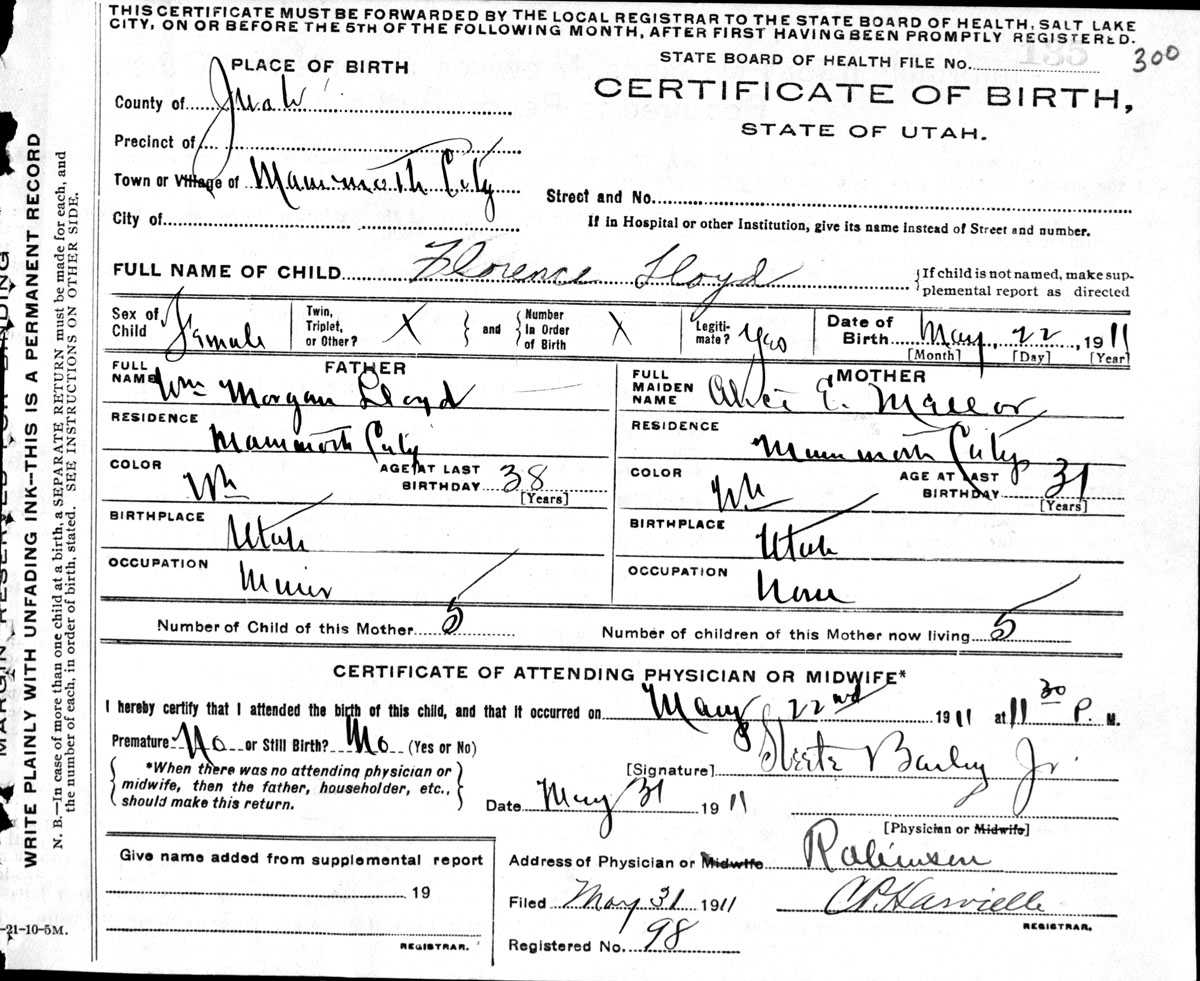 THIS CERTIFICATE MUST BE FORWARDED BY THE LOCAL REGISTRAR TO THE STATE BOARD OF HEALTH, SALT LAKE
CITY, ON OR BEFORE THE 5TH OF THE FOLLOWING MONTH, AFTER FIRST HAVING BEEN PROMPTLY REGISTERED.
PLACE OF BIRTH
STATE BOARD OF HEALTH FILE No. 135 300
County of Juab
CERTIFICATE OF BIRTH,
STATE OF UTAH.
Precinct of
Town or Village of Mammoth City
Street and No.
City of
If in Hospital or other Institution, give its name instead of Street and number.
FULL NAME OF CHILD Florence Lloyd {If child is not named, make sup-
plemental report as directed
Sex of Child Female Twin, Triplet, or Other? X } and { Number In Order of Birth X Legiti-mate? Yes Date of Birth May 22, 1911
[Month] [Day] [Year]
FATHER
MOTHER
FULL NAME Wm Morgan Lloyd
FULL MAIDEN NAME Alice E.
RESIDENCE Mammoth City
RESIDENCE Mammoth City
COLOR Wh AGE AT LAST BIRTHDAY 38 [Years]
COLOR Wh AGE AT LAST BIRTHDAY 31 [Years]
BIRTHPLACE Utah
BIRTHPLACE Utah
OCCUPATION Miner
OCCUPATION None
Number of Child of this Mother 5
Number of children of this Mother now living 5
CERTIFICATE OF ATTENDING PHYSICIAN OR MIDWIFE*
I hereby certify that I attended the birth of this child, and that it occurred on May 22nd 1911 at 11 30 P. M.
Premature No or Still Birth? No (Yes or No)
*When there was no attending physician or
midwife, then the father, householder, etc.,
should make this return.
[Signature] Steele Bailey Jr.
Date May 31 1911
[Physician or Midwife]
Give name added from supplemental report
Address of Physician or Midwife Robinson
19
Filed May 31 1911
REGISTRAR.
Registered No. 98
REGISTRAR.
MARGIN RESERVED FOR BINDING
WRITE PLAINLY WITH UNFADING INK—THIS IS A PERMANENT RECORD
N. B.—In case of more than one child at a birth, a SEPARATE RETURN must be made for each, and
the number of each, in order of birth, stated. SEE INSTRUCTIONS ON OTHER SIDE.
-21-10-5M.